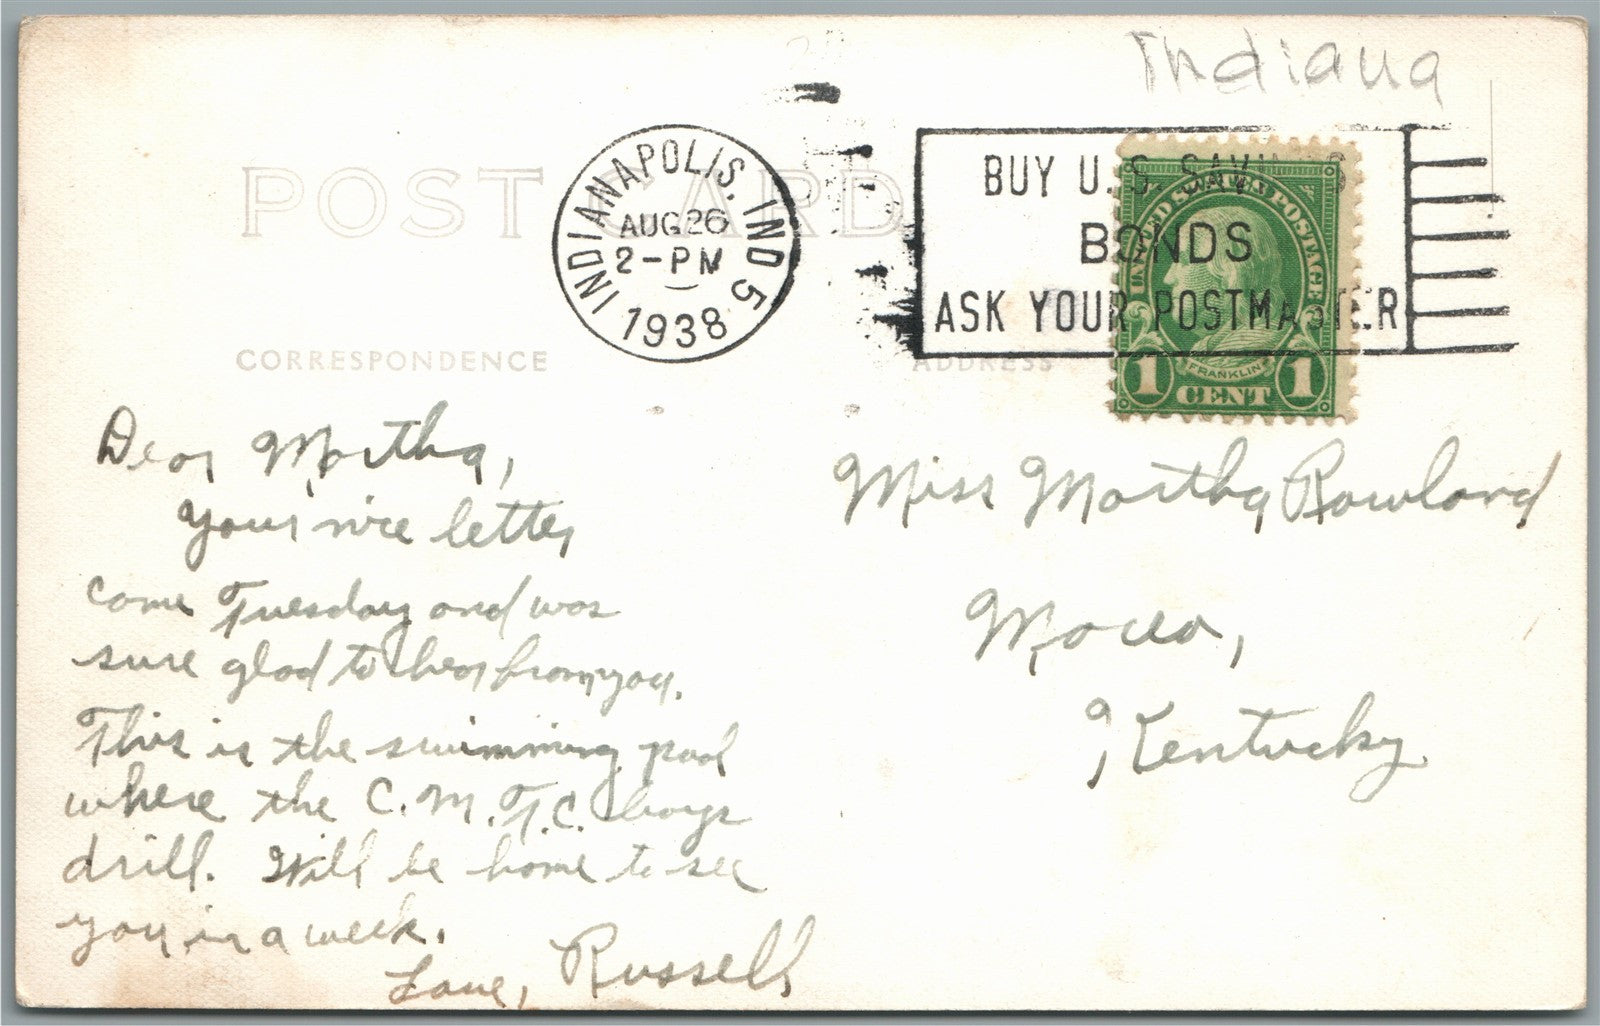 Indiana
POST CARD
INDIANAPOLIS. IND 5
AUG 26
2-PM
1938
BUY U.S. SAVINGS
BONDS
ASK YOUR POSTMASTER
UNITED STATES POSTAGE
FRANKLIN
1 CENT 1
CORRESPONDENCE
ADDRESS
Dear Martha,
Your nice letter
come Tuesday and was
sure glad to hear from you.
This is the swimming pool
where the C.M.T.C. boys
drill. Will be home to see
you in a week.
Love, Russell
Miss Martha Rowland
Maceo,
Kentucky